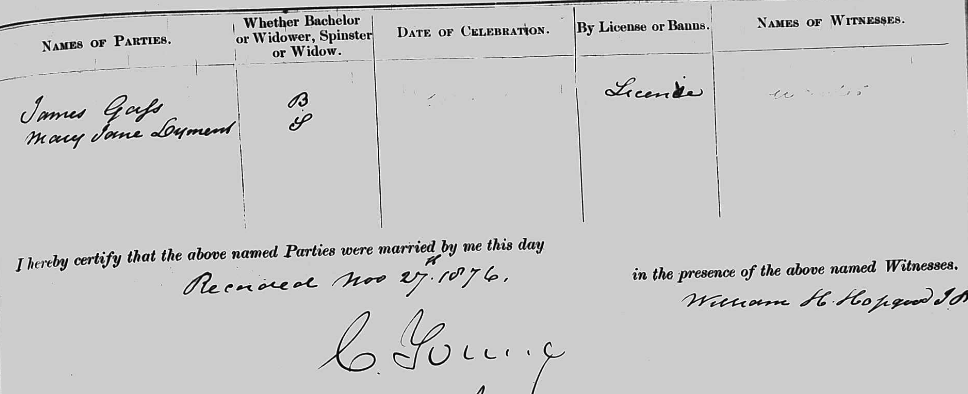 NAMES OF PARTIES.
Whether Bachelor
or Widower, Spinster
or Widow.
DATE OF CELEBRATION.
By License or Banns.
NAMES OF WITNESSES.
James Gass
B
License
Mary Jane Lyment
S
I hereby certify that the above named Parties were married by me this day
in the presence of the above named Witnesses.
Recorded Nov 27th 1876.
William H. Hopgood J P
C. Young